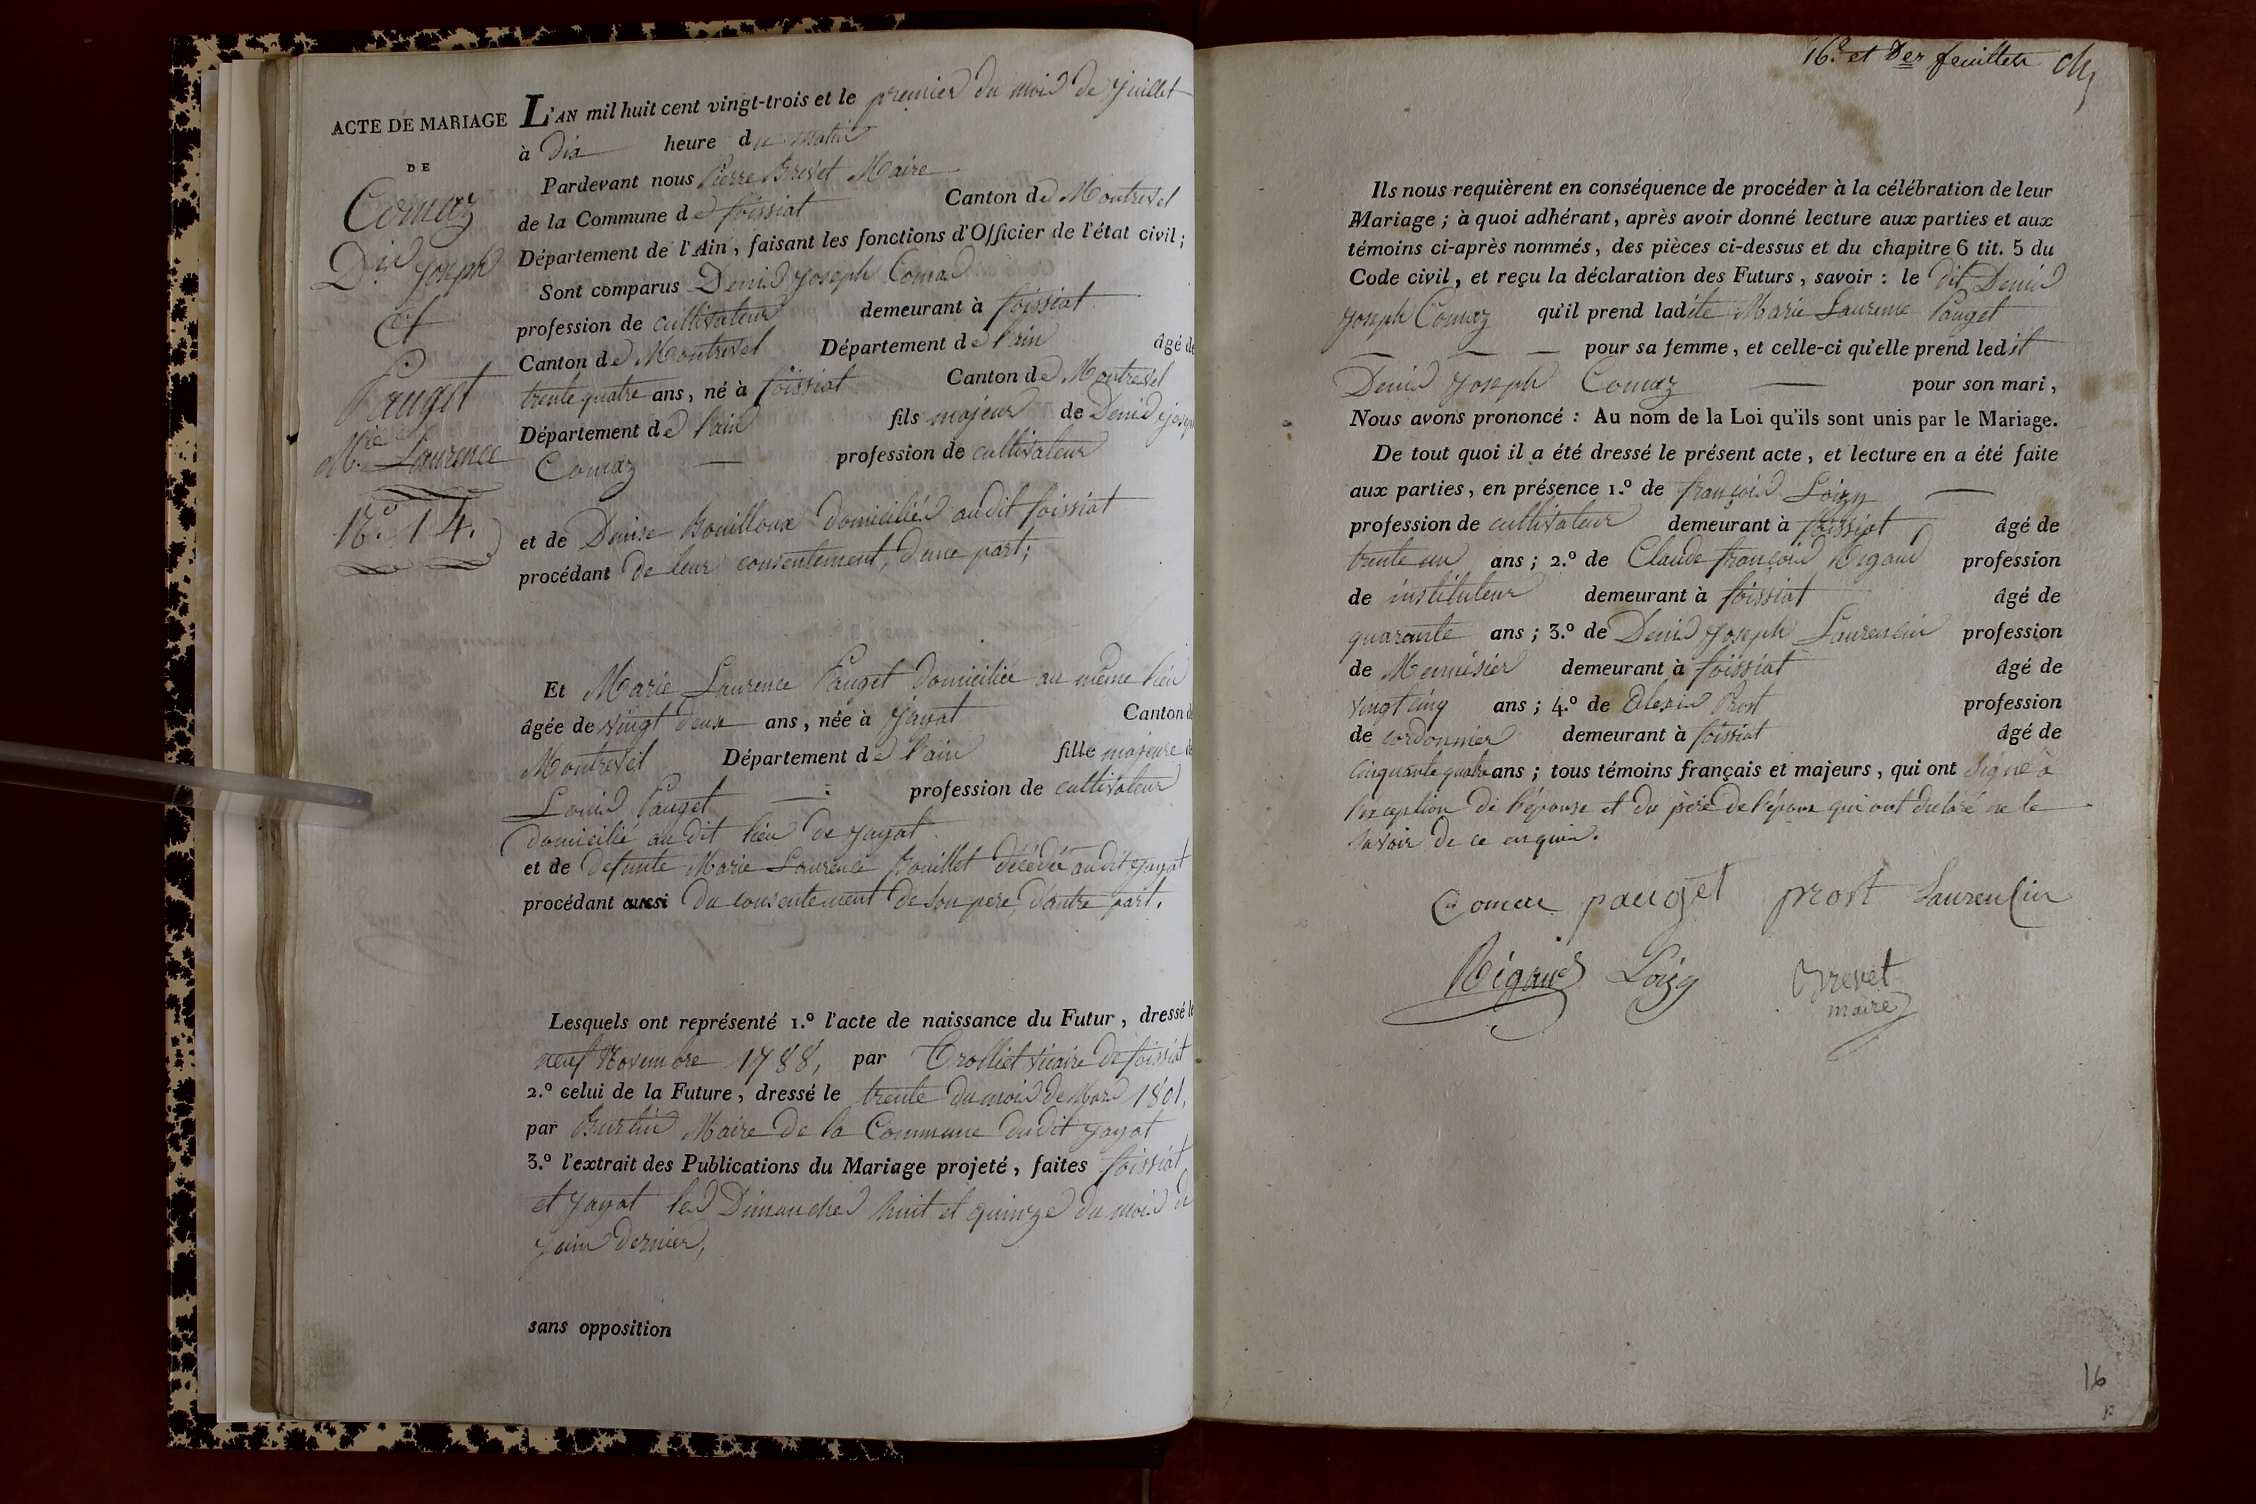 ACTE DE MARIAGE
DE
Comaz
D.is Joseph
Et
Pauget
M.rie Laurence
N.o 14.
L'AN mil huit cent vingt-trois et le premier du mois de Juillet
à dix heure du matin
Pardevant nous Pierre Brevet Maire
de la Commune de foissiat Canton de Montrevel
Département de l'Ain, faisant les fonctions d'Officier de l'état civil;
Sont comparus Denis Joseph Comaz
profession de cultivateur demeurant à foissiat
Canton de Montrevel Département de l'ain âgé de
trente quatre ans, né à foissiat Canton de Montrevel
Département de l'ain fils majeur de Denis Joseph
Comaz profession de cultivateur
et de Denise Bouilloux domiciliés audit foissiat
procédant de leur consentement, d'une part;
Et Marie Laurence Pauget domiciliée au même lieu
âgée de vingt deux ans, née à Jayat Canton de
Montrevel Département de l'ain fille majeure de
Louis Pauget profession de cultivateur
domicilié au dit lieu de Jayat
et de defunte Marie Laurence Bouillet décédée audit Jayat
procédant aussi du consentement de son pere, d'autre part.
Lesquels ont représenté 1.º l'acte de naissance du Futur, dressé le
neuf Novembre 1788, par Trolliet vicaire de foissiat
2.º celui de la Future, dressé le trente du mois de Mars 1801,
par Burtin Maire de la Commune dudit Jayat
3.º l'extrait des Publications du Mariage projeté, faites foissiat
et Jayat les Dimanches huit et quinze du mois de
Juin dernier,
sans opposition
16.e et Der feuillets
Ils nous requièrent en conséquence de procéder à la célébration de leur
Mariage; à quoi adhérant, après avoir donné lecture aux parties et aux
témoins ci-après nommés, des pièces ci-dessus et du chapitre 6 tit. 5 du
Code civil, et reçu la déclaration des Futurs, savoir: le dit Denis
Joseph Comaz qu'il prend ladite Marie Laurence Pauget
pour sa femme, et celle-ci qu'elle prend ledit
Denis Joseph Comaz pour son mari,
Nous avons prononcé: Au nom de la Loi qu'ils sont unis par le Mariage.
De tout quoi il a été dressé le présent acte, et lecture en a été faite
aux parties, en présence 1.º de françois Loizy
profession de cultivateur demeurant à foissiat âgé de
trente un ans; 2.º de Claude françois Rigaud profession
de instituteur demeurant à foissiat âgé de
quarante ans; 3.º de Denis Joseph Laurencin profession
de Menuisier demeurant à foissiat âgé de
vingt cinq ans; 4.º de Alexis Prost profession
de cordonnier demeurant à foissiat âgé de
cinquante quatre ans; tous témoins français et majeurs, qui ont signé à
l'exception de l'épouse et du père de l'époux qui ont declaré ne le
savoir de ce enquis.
Comaz pauget prost Laurencin
Rigaud Loizy Brevet
maire
16